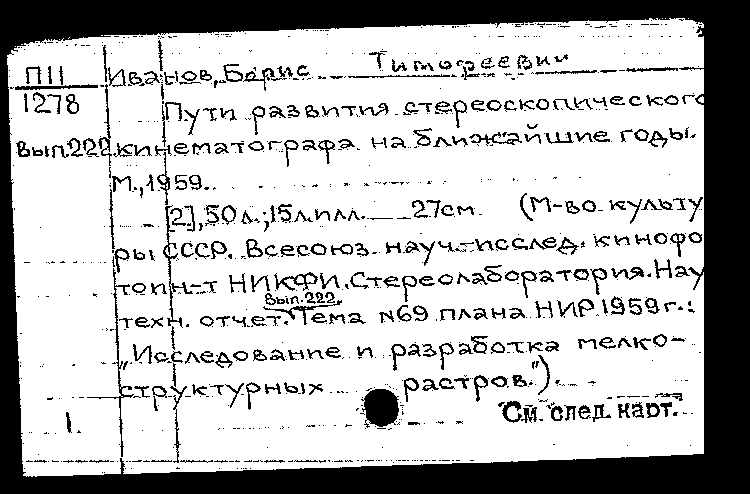 П11 Иванов, Борис Тимофеевич
1278 Пути развития стереоскопического
Вып.222 кинематографа на ближайшие годы.
М., 1959.
[2], 50 л.; 15 л. илл. 27см. (М-во культу
ры СССР. Всесоюз. науч.-исслед. кинофо
то ин-т НИКФИ. Стереолаборатория. Нау
Вып. 222.
техн. отчет. Тема №69 плана НИР 1959 г.:
„Исследование и разработка мелко-
структурных растров.").
1. См. след. карт.